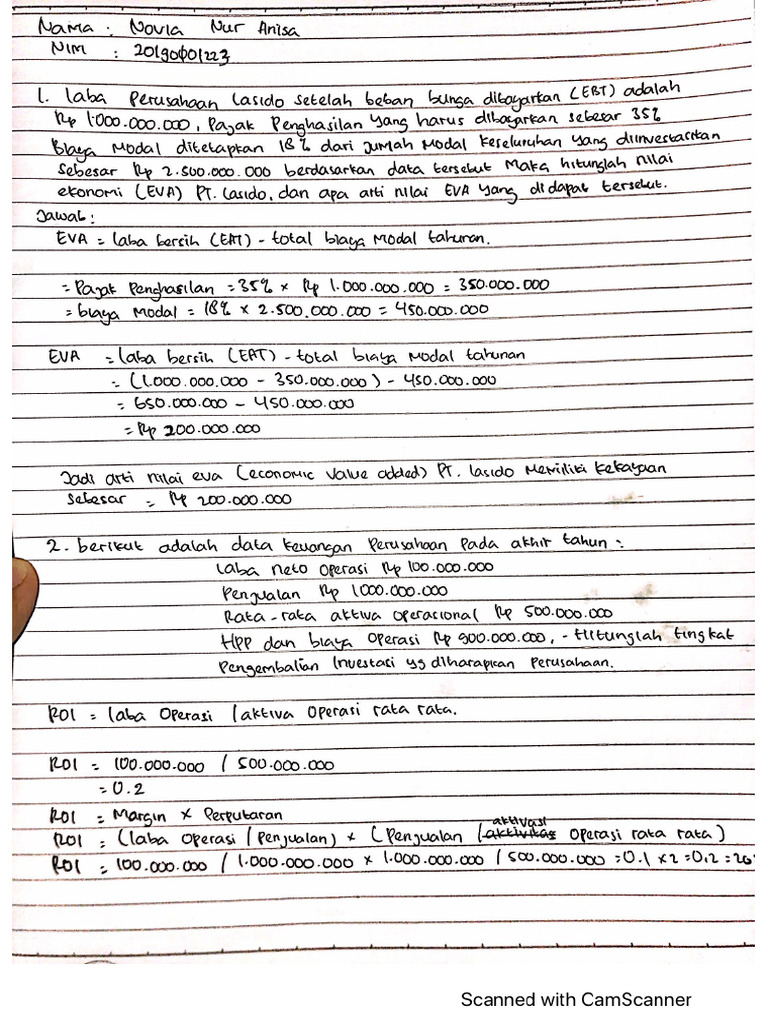 Nama : Novia Nur Anisa
NIM : 20190001223
1. Laba Perusahaan Lasido setelah beban bunga dibayarkan (EBT) adalah
Rp 1.000.000.000, Pajak Penghasilan yang harus dibayarkan sebesar 35%
Biaya Modal ditetapkan 18% dari jumlah modal keseluruhan yang diinvestasikan
sebesar Rp 2.500.000.000 berdasarkan data tersebut maka hitunglah nilai
ekonomi (EVA) PT. Lasido, dan apa arti nilai EVA yang didapat tersebut.
Jawab :
EVA = Laba bersih (EAT) - total biaya modal tahunan.
= Pajak Penghasilan = 35% × Rp 1.000.000.000 = 350.000.000
= biaya Modal = 18% × 2.500.000.000 = 450.000.000
EVA = Laba bersih (EAT) - total biaya modal tahunan
= (1.000.000.000 - 350.000.000) - 450.000.000
= 650.000.000 - 450.000.000
= Rp 200.000.000
Jadi arti nilai eva (economic value added) PT. Lasido memiliki kekayaan
sebesar = Rp 200.000.000
2. berikut adalah data keuangan Perusahaan Pada akhir tahun :
Laba neto operasi Rp 100.000.000
Penjualan Rp 1.000.000.000
Rata-rata aktiva operasional Rp 500.000.000
HPP dan biaya operasi Rp 900.000.000,- Hitunglah tingkat
Pengembalian Investasi yg diharapkan Perusahaan.
ROI = Laba Operasi / aktiva Operasi rata rata.
ROI = 100.000.000 / 500.000.000
= 0.2
ROI = Margin × Perputaran
ROI = (Laba Operasi / Penjualan) × (Penjualan / aktivasi Operasi rata rata)
ROI = 100.000.000 / 1.000.000.000 × 1.000.000.000 / 500.000.000 = 0.1 × 2 = 0.2 = 20
Scanned with CamScanner